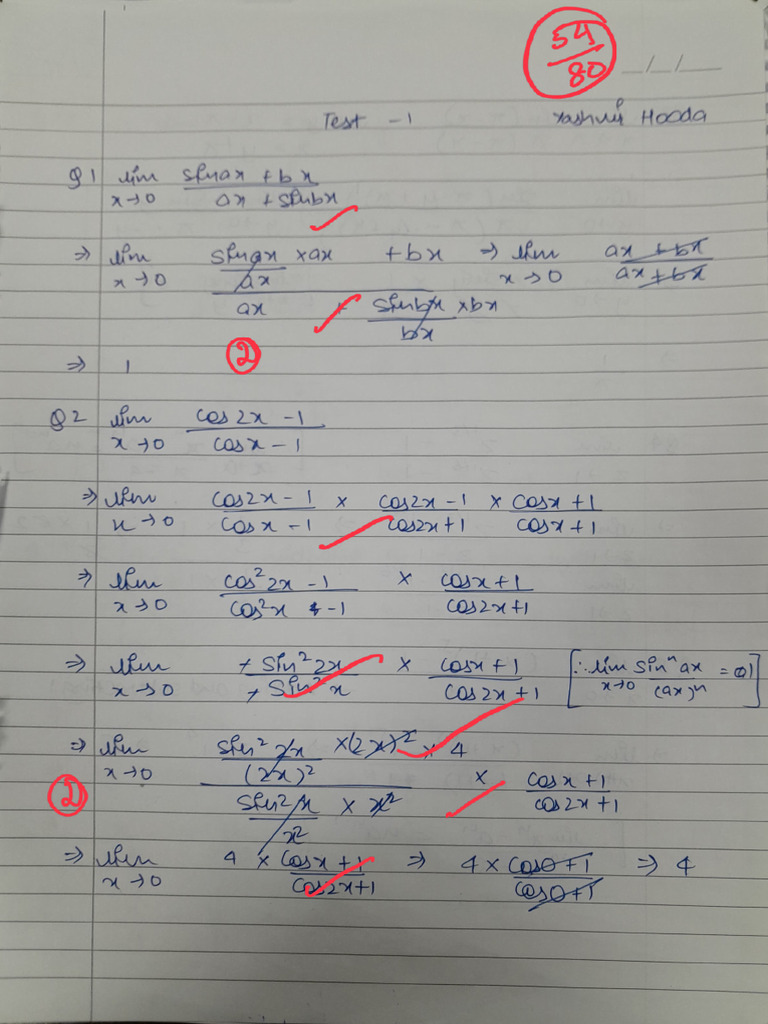 54/80
__/__/____
Test - 1 Hooda
Q1 lim x→0 (sin ax + bx)/(ax + sin bx)
⇒ lim x→0 ((sin ax)/(ax) × ax + bx)/(ax + (sin bx)/(bx) × bx) ⇒ lim x→0 (ax + bx)/(ax + bx)
⇒ 1 2
Q2 lim x→0 (cos 2x - 1)/(cos x - 1)
⇒ lim x→0 (cos 2x - 1)/(cos x - 1) × (cos 2x - 1)/(cos 2x + 1) × (cos x + 1)/(cos x + 1)
⇒ lim x→0 (cos² 2x - 1)/(cos² x - 1) × (cos x + 1)/(cos 2x + 1)
⇒ lim x→0 (+ sin² 2x)/(+ sin² x) × (cos x + 1)/(cos 2x + 1) [∵ lim x→0 (sinⁿ ax)/(ax)ⁿ = 1]
⇒ lim x→0 ((sin² 2x)/(2x)² × (2x)² × 4)/((sin² x)/x² × x²) × (cos x + 1)/(cos 2x + 1)
2
⇒ lim x→0 4 × (cos x + 1)/(cos 2x + 1) ⇒ 4 × (cos 0 + 1)/(cos 0 + 1) ⇒ 4